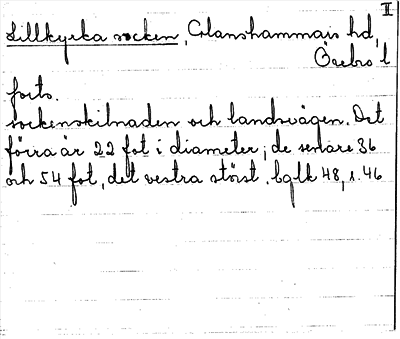 II
Lillkyrka socken, Glanshammars hd,
Örebro l
forts.
sockenskilnaden och landsvägen. Det
förra är 22 fot i diameter; de senare 36
och 54 fot, det vestra störst. bglk 48, s. 46